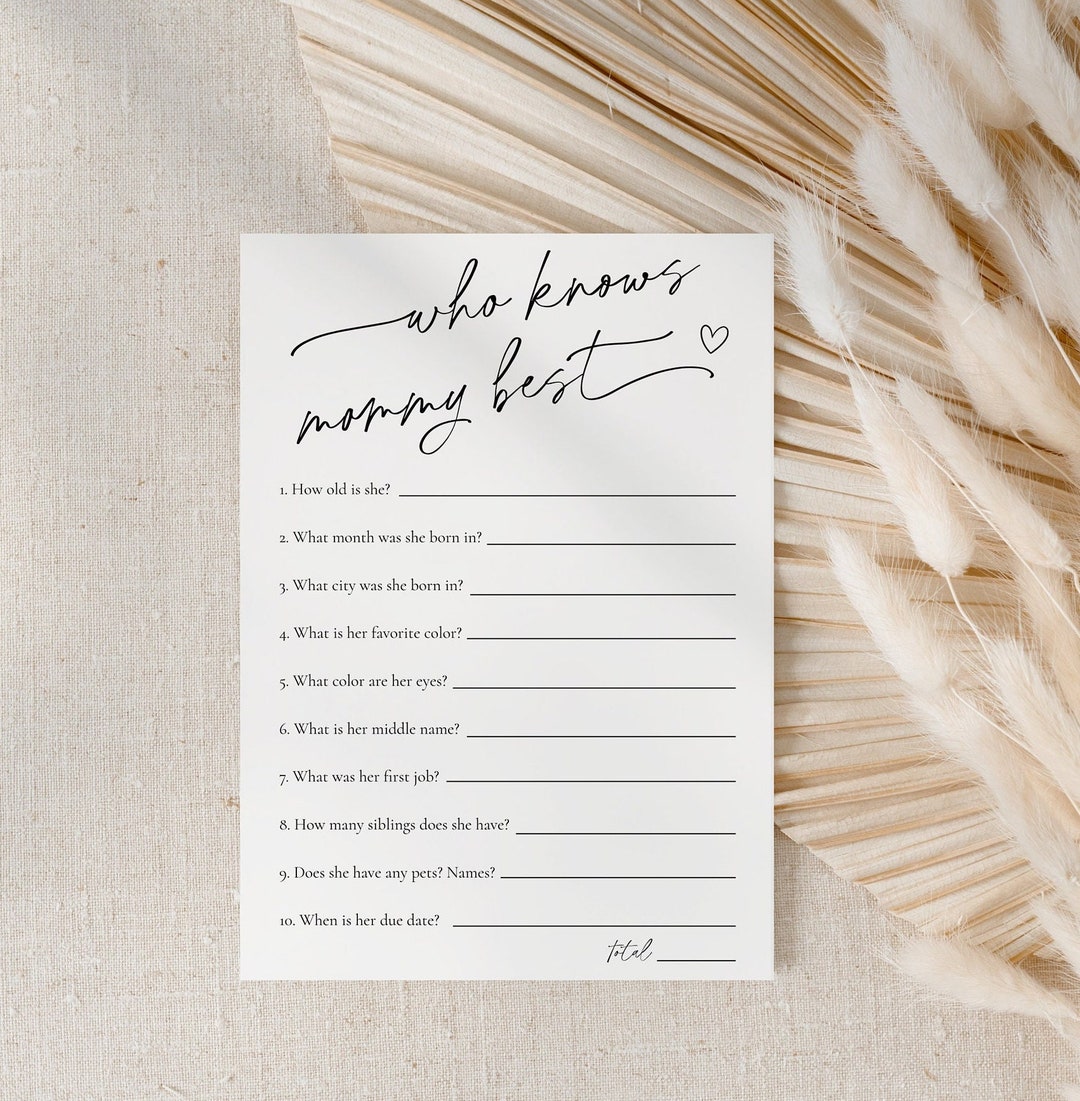 who knows
mommy best
1. How old is she?
2. What month was she born in?
3. What city was she born in?
4. What is her favorite color?
5. What color are her eyes?
6. What is her middle name?
7. What was her first job?
8. How many siblings does she have?
9. Does she have any pets? Names?
10. When is her due date?
total